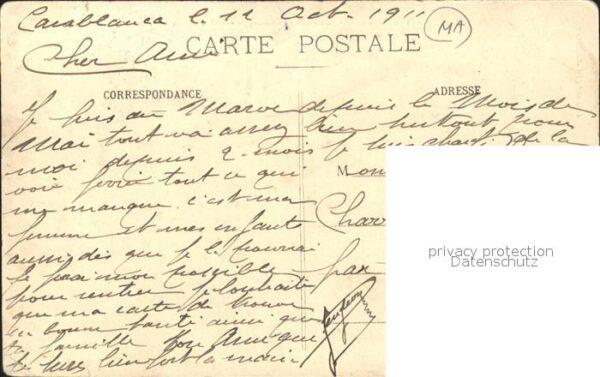 Casablanca le 11 Oct. 1911
MA
Cher Ami
CARTE POSTALE
CORRESPONDANCE
ADRESSE
Je suis au Maroc depuis le Mois de
Mai tout va assez bien surtout pour
moi depuis 2 mois je suis chef de la
voie ferrée tout ce qui
me manque c'est ma
femme et mes enfants
aussi dès que je le pourrai
je ferai mon possible
pour rentrer je souhaite
que ma carte te trouve
en bonne santé ainsi que
ta famille ton Ami qui
te serre bien fort la main
Mon
Charr
par
privacy protection
Datenschutz